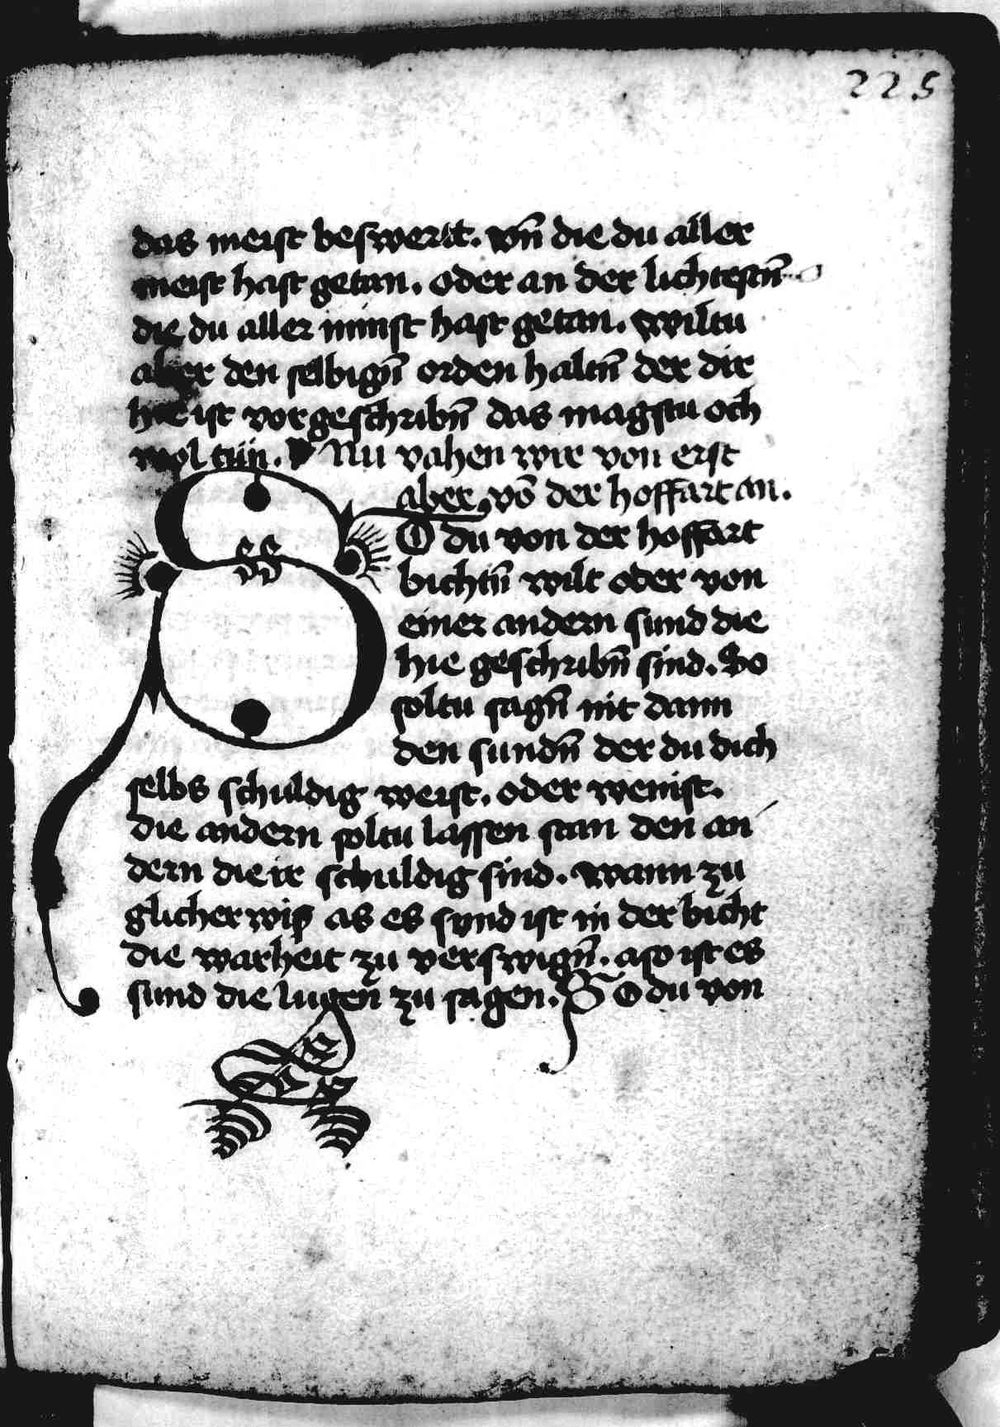 225
das meist beswert. vn̄ die du aller
meist hast getan. oder an der lichtestn̄
die du aller minst hast getan. wiltu
aber den selbign̄ orden haltn̄ der dir
hie ist vorgeschribn̄ das magstu och
wol tün. Nu vahen wir von erst
aber vō der hoffart an.
SO du von der hoffart
bichtn̄ wilt oder von
einer andern sund die
hie geschribn̄ sind. So
soltu sagn̄ nit dann
den sundn̄ der du dich
selbs schuldig weist. oder wenist.
die andern soltu lassen stan den an
dern die ir schuldig sind. wann zu
glicher wiß as es synd ist in der bicht
die warheit zu verswign̄. aso ist es
sund die lugen zu sagen. So du von